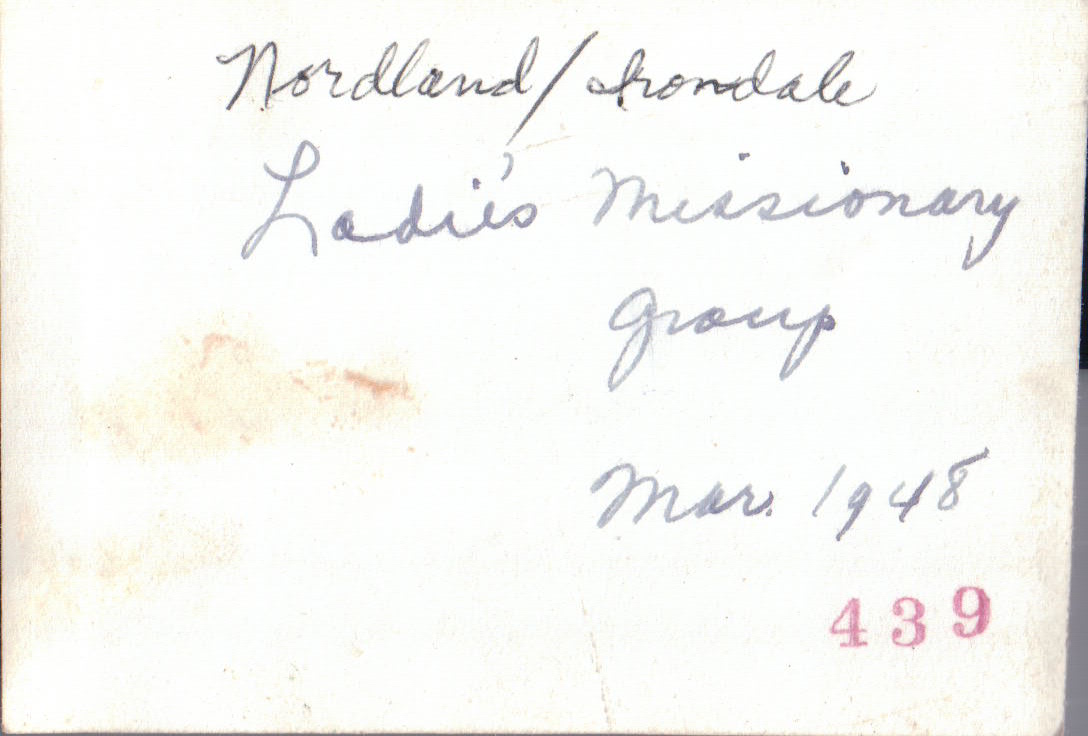 Nordland/Irondale
Ladie's Missionary
group
Mar. 1948
439